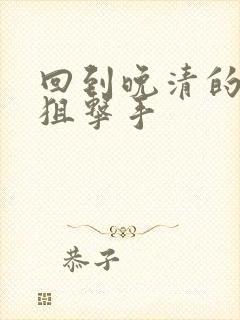 回到晚清的
狙擊手
恭子